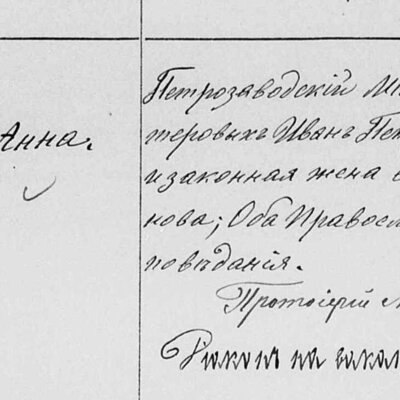 Анна.
Петрозаводскій М
теровыхъ Иванъ Пе
и законная жена е
нова; Оба Правосл
повѣданія.
Протоіерій
Діаконъ на вака